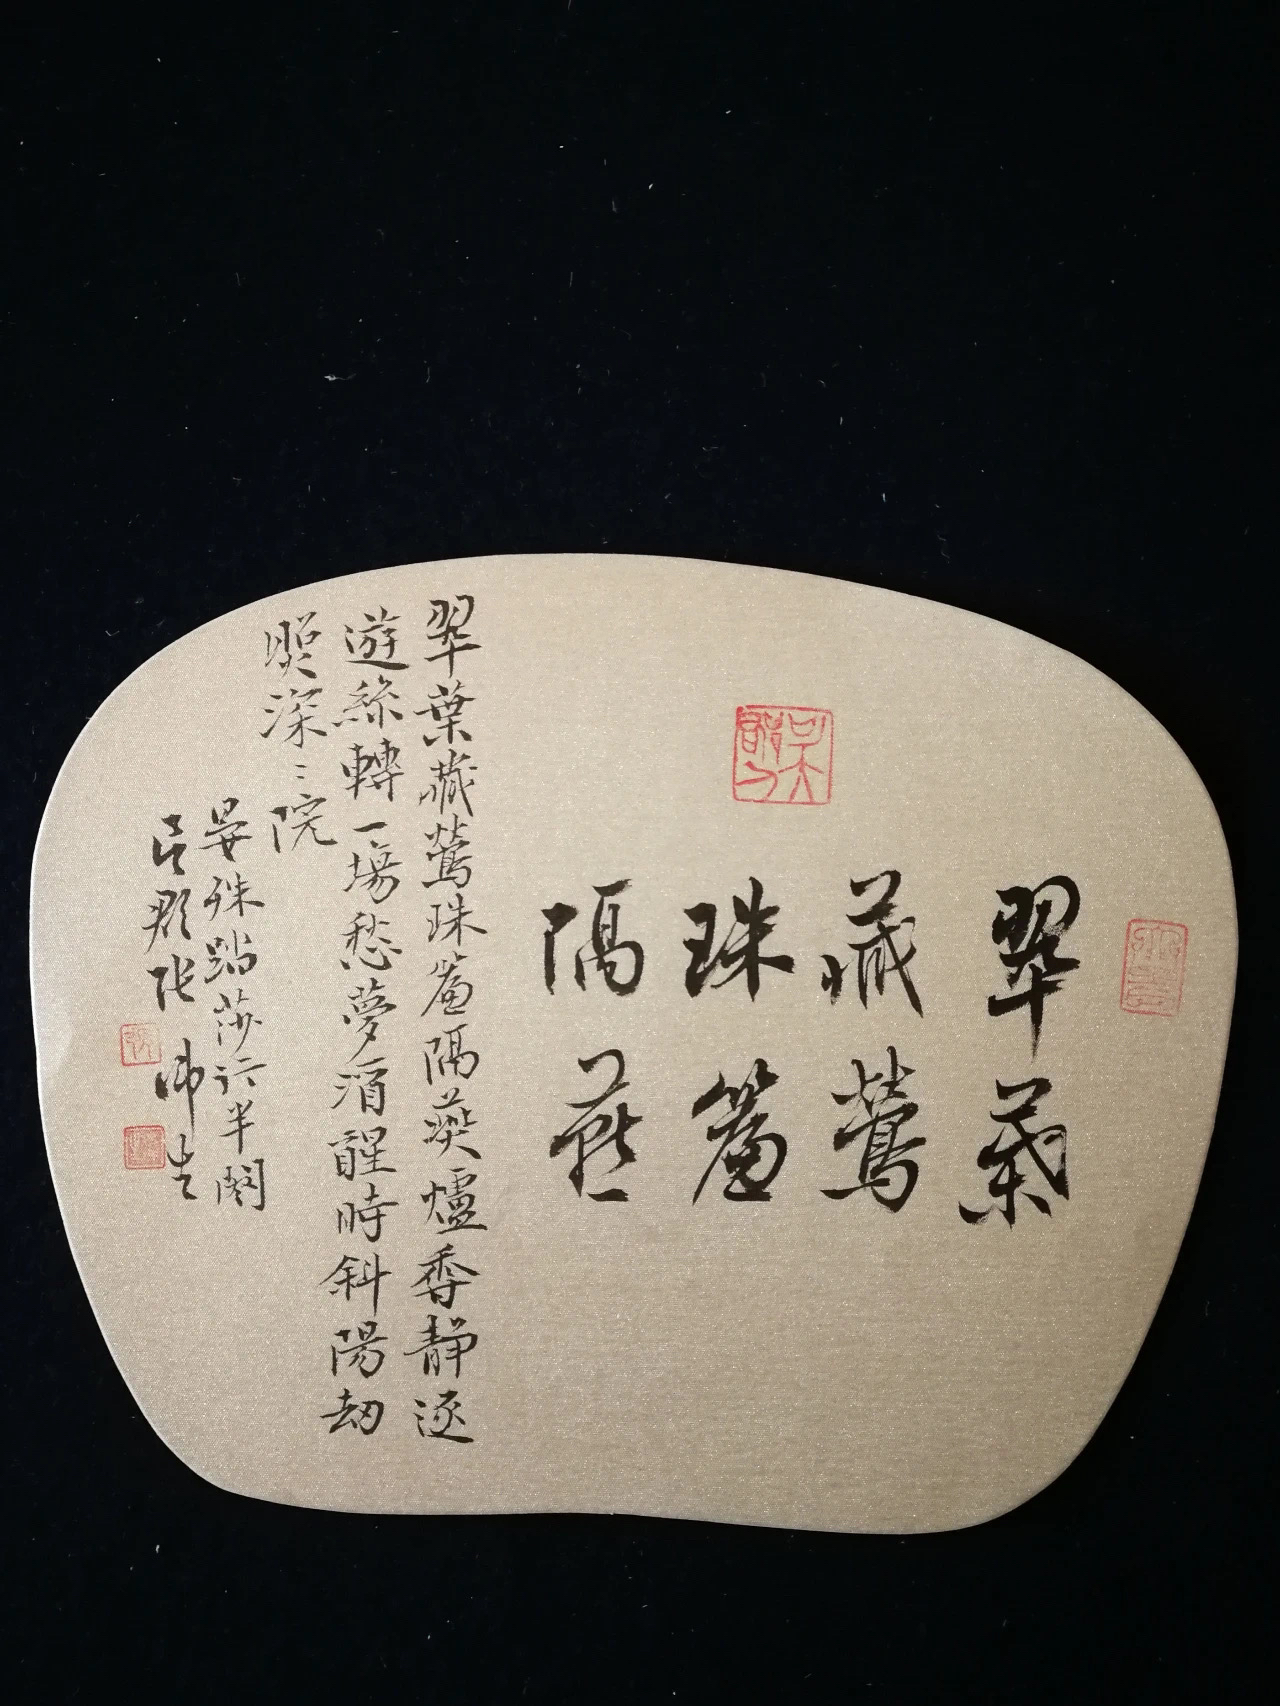 翠葉
藏鶯
珠簾
隔燕
翠葉藏鶯珠簾隔燕爐香靜逐
遊絲轉一場愁夢酒醒時斜陽却
照深〻院
晏殊踏莎行半闋
呂郡張